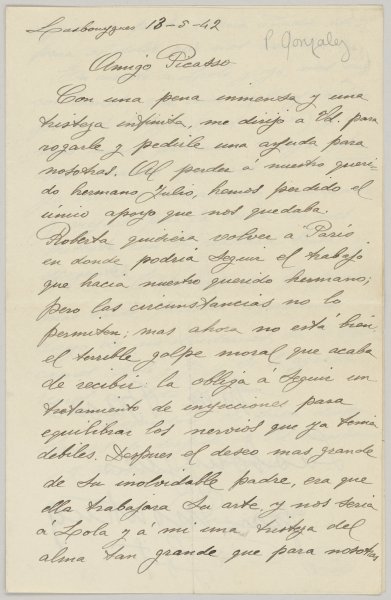 Lasbouygues 13-5-42
P. Gonzalez
Amigo Picasso
Con una pena inmensa y una
tristeza infinita, me dirijo a Vd. para
rogarle y pedirle una ayuda para
nosotras. Al perder á nuestro queri-
do hermano Julio, hemos perdido el
único apoyo que nos quedaba.
Roberta quisiera volver a Paris
en donde podria seguir el trabajo
que hacia nuestro querido hermano;
pero las circunstancias no lo
permiten; mas ahora no está bien,
el terrible golpe moral que acaba
de recibir la obliga á seguir un
tratamiento de inyecciones para
equilibrar los nervios que ya tenia
debiles. Despues el deseo mas grande
de su inolvidable padre, era que
ella trabajara su arte, y nos seria
á Lola y á mi una tristeza del
alma tan grande que para nosotras